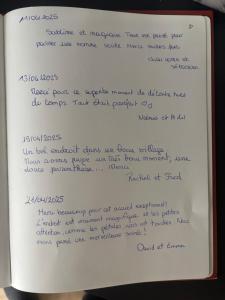 11/04/2025
Sublime et magique. Tout est pensé pour
passer une soirée
et
Sébastien
13/04/2025
Merci pour ce superbe moment de détente hors
du temps. Tout était parfait
et
19/04/2025
Un bel endroit dans un beau village.
Nous avons passé un très bon moment, une
douce parenthèse.... Merci
Rachel et Fred
21/04/2025
Merci beaucoup pour cet accueil exceptionnel!
L'endroit est vraiment magnifique et les petites
attention, comme les pétales sont au top. Nous
avons passé une merveilleuse soirée!
David et Emma